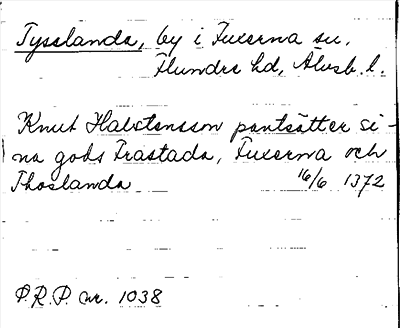 Tysslanda, by i Fuxerna sn.
Flundre hd, Älvsb. l.
Knut Halstensson pantsätter si-
na gods Frastada, Fuxerna och
Thoslanda 16/6 1372
P.R.P. nr. 1038